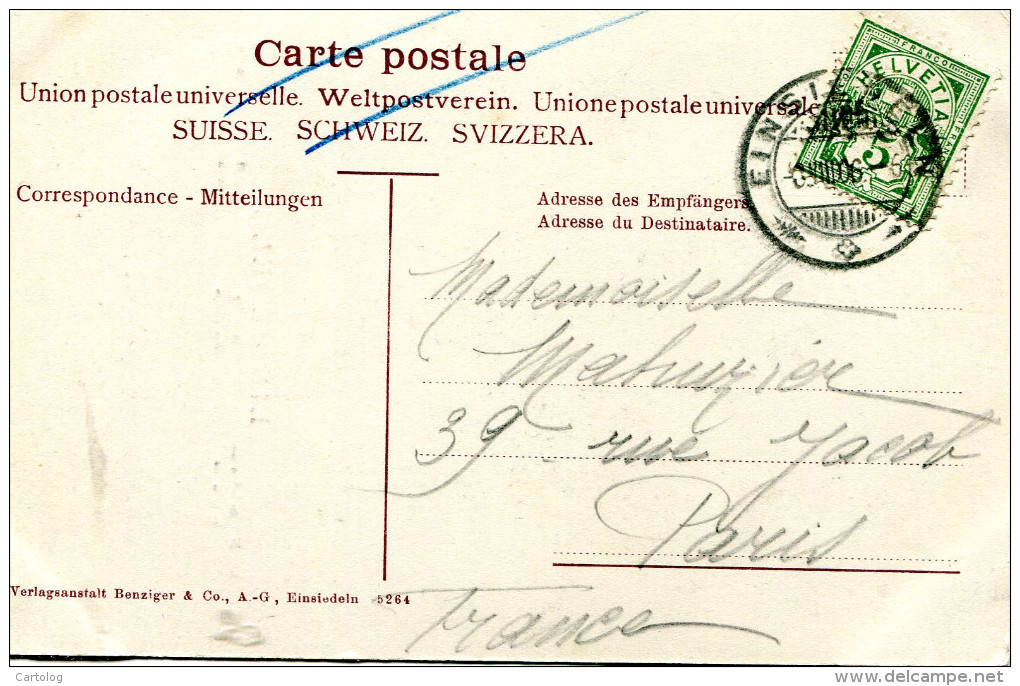 Carte postale
Union postale universelle. Weltpostverein. Unione postale universale
SUISSE. SCHWEIZ. SVIZZERA.
FRANCO
HELVETIA
FRANCO
5
VIII.06
Correspondance - Mitteilungen
Adresse des Empfängers.
Adresse du Destinataire.
Mademoiselle
Mahuzier
39 rue Jacob
Paris
France
Verlagsanstalt Benziger & Co., A.-G, Einsiedeln 5264
Cartolog
delcampe.net